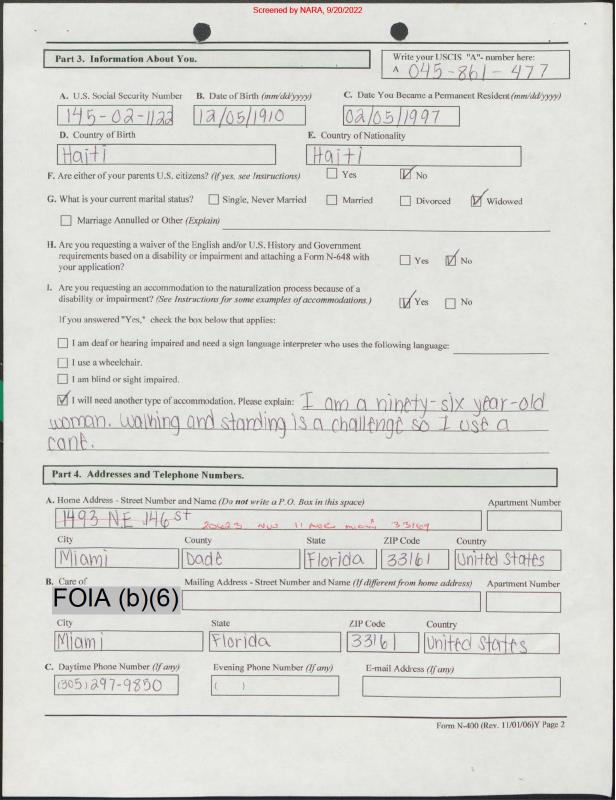 Screened by NARA, 9/20/2022
Part 3. Information About You.
Write your USCIS "A"- number here:
A 045-861-477
A. U.S. Social Security Number B. Date of Birth (mm/dd/yyyy) C. Date You Became a Permanent Resident (mm/dd/yyyy)
145-02-1122 12/05/1910 02/05/1997
D. Country of Birth E. Country of Nationality
Haiti Haiti
F. Are either of your parents U.S. citizens? (If yes, see Instructions) Yes No
G. What is your current marital status? Single, Never Married Married Divorced Widowed
Marriage Annulled or Other (Explain)
H. Are you requesting a waiver of the English and/or U.S. History and Government
requirements based on a disability or impairment and attaching a Form N-648 with
your application? Yes No
I. Are you requesting an accommodation to the naturalization process because of a
disability or impairment? (See Instructions for some examples of accommodations.) Yes No
If you answered "Yes," check the box below that applies:
I am deaf or hearing impaired and need a sign language interpreter who uses the following language:
I use a wheelchair.
I am blind or sight impaired.
I will need another type of accommodation. Please explain: I am a ninety-six year-old
woman. Walking and standing is a challenge so I use a
cane.
Part 4. Addresses and Telephone Numbers.
A. Home Address - Street Number and Name (Do not write a P.O. Box in this space) Apartment Number
1493 NE 146 st 20623 NW 11 Ave Miami 33169
City County State ZIP Code Country
Miami Dade Florida 33161 United States
B. Care of Mailing Address - Street Number and Name (If different from home address) Apartment Number
FOIA (b)(6)
City State ZIP Code Country
Miami Florida 33161 United States
C. Daytime Phone Number (If any) Evening Phone Number (If any) E-mail Address (If any)
(305) 297-9850 ( )
Form N-400 (Rev. 11/01/06)Y Page 2